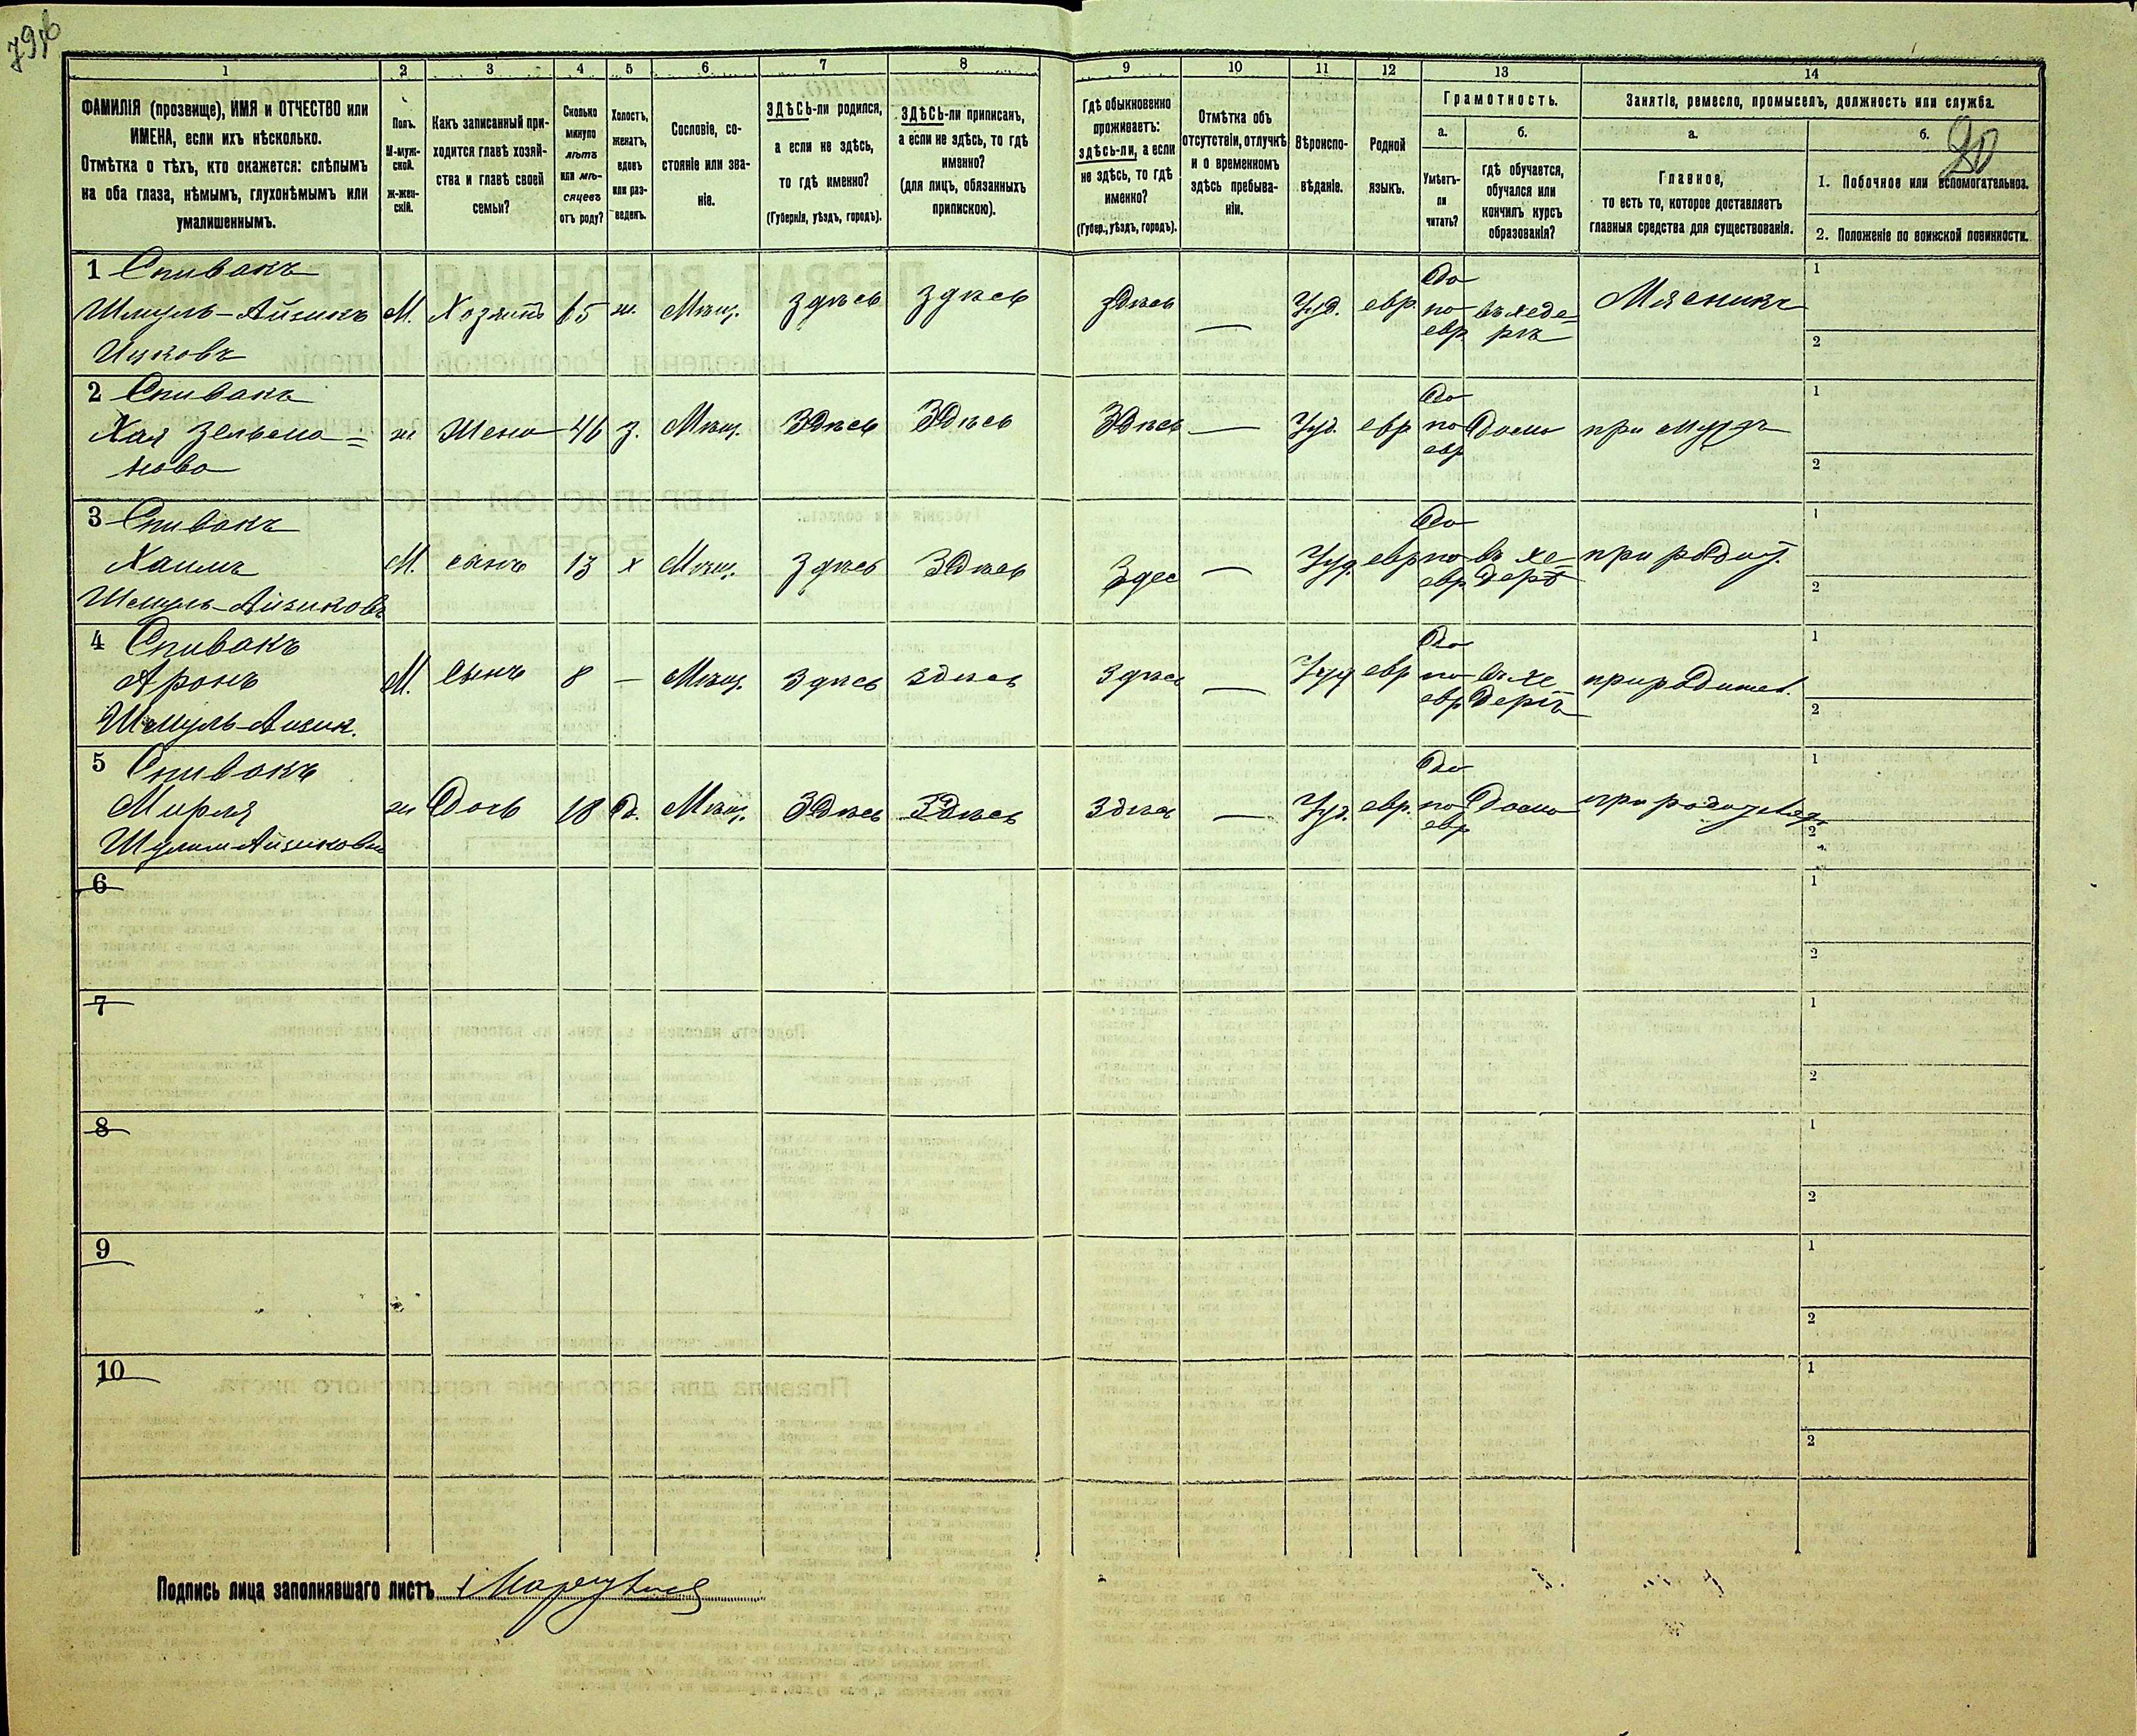 1 2 3 4 5 6 7 8 9 10 11 12 13 14
ФАМИЛІЯ (прозвище), ИМЯ и ОТЧЕСТВО или
ИМЕНА, если ихъ нѣсколько.
Отмѣтка о тѣхъ, кто окажется: слѣпымъ
на оба глаза, нѣмымъ, глухонѣмымъ или
умалишеннымъ.
Полъ.
М-муж-
ской.
Ж-жен-
скій.
Какъ записанный при-
ходится главѣ хозяй-
ства и главѣ своей
семьи?
Сколько
минуло
лѣтъ
или мѣ-
сяцевъ
отъ роду?
Холостъ,
женатъ,
вдовъ
или раз-
веденъ.
Сословіе, со-
стояніе или зва-
ніе.
ЗДѢСЬ-ли родился,
а если не здѣсь,
то гдѣ именно?
(Губернія, уѣздъ, городъ).
ЗДѢСЬ-ли приписанъ,
а если не здѣсь, то гдѣ
именно?
(для лицъ, обязанныхъ
припискою).
Гдѣ обыкновенно
проживаетъ:
здѣсь-ли, а если
не здѣсь, то гдѣ
именно?
(Губер., уѣздъ, городъ).
Отмѣтка объ
отсутствіи, отлучкѣ
и о временномъ
здѣсь пребыва-
ніи.
Вѣроиспо-
вѣданіе.
Родной
языкъ.
Грамотность.
а.
Умѣетъ-
ли
читать?
б.
гдѣ обучается,
обучался или
кончилъ курсъ
образованія?
Занятіе, ремесло, промыселъ, должность или служба.
а.
Главное,
то есть то, которое доставляетъ
главныя средства для существованія.
б.
20
1. Побочное или вспомогательное.
2. Положеніе по воинской повинности.
1 Спивакъ
Шмуль-Айзикъ М. Хозяинъ ж. Мѣщ. здѣсь здѣсь здѣсь — Іуд. евр. Да по евр въ хеде= рѣ Мясникъ 1
Ицковъ 2
2 Спивакъ
Хая Зельма= ж Жена 46 З. Мѣщ. Здѣсь Здѣсь Здѣсь — Іуд. евр Да по евр Дома при мужѣ 1
нова 2
3 Спивакъ
Хаимъ М. сынъ 13 х Мѣщ. Здѣсь Здѣсь Здес — Іуд. евр Да по евр въ хе- дерѣ при родит. 1
Шмуль-Айзиковъ 2
4 Спивакъ
Аронъ М. Сынъ 8 — Мѣщ. Здѣсь здѣсь Здѣсь — Іуд евр Да по евр въ хе дерѣ при родител. 1
Шмуль-Айзик. 2
5 Спивакъ
Мирля ж Дочь 18 Д. Мѣщ. Здѣсь Здѣсь Здѣсь — Іуд. евр. Да по евр Дома 1
2
6 1
2
7 1
2
8 1
2
9 1
2
10 1
2
Подпись лица заполнявшаго листъ